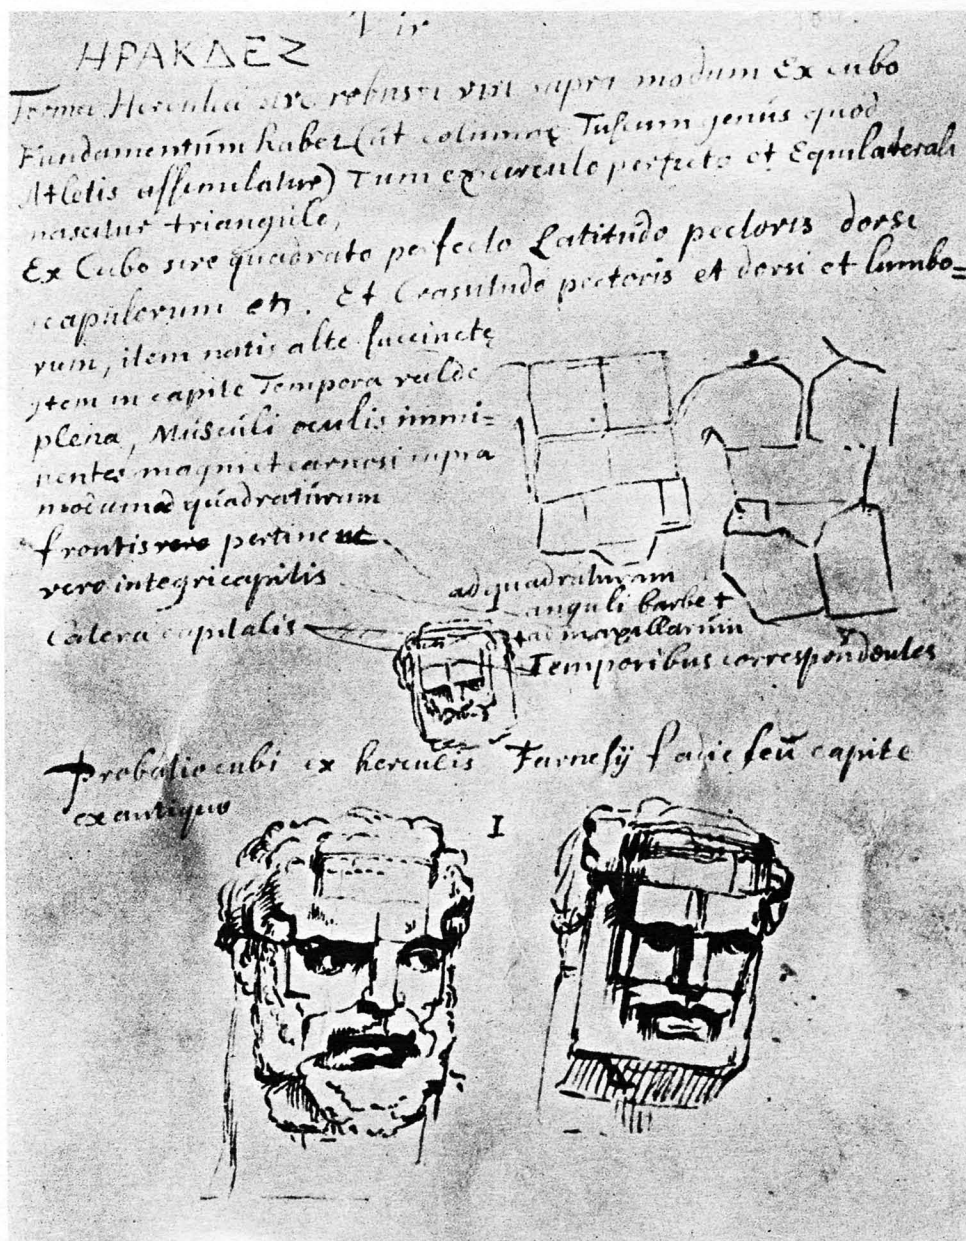 Vir
ΗΡΑΚΔΕΖ
Forma Herculea sive robusti viri supra modum Ex cubo
Fundamentum habet (ut columnae Tuscum genus quod
Atletis assimulatur) Tum ex circulo perfecto et Equilaterali
nascitur triangulo,
Ex Cubo sive quadrato perfecto Latitudo pectoris dorsi
scapulorum etc. Et Crassitudo pectoris et dorsi et lumbo=
rum, item natis alte succincte
Item in capite Tempora valde
plena, Musculi oculis immi=
nentes magni et carnosi supra
modum ad quadraturam
frontis vero pertinent
vero integri capitis
Cætera capitalis
ad quadraturam
anguli barbe +
+ ad maxillarum
Temporibus correspondentes
Probatio cubi ex herculis Farnesij facie seu capite
ex antiquo
I